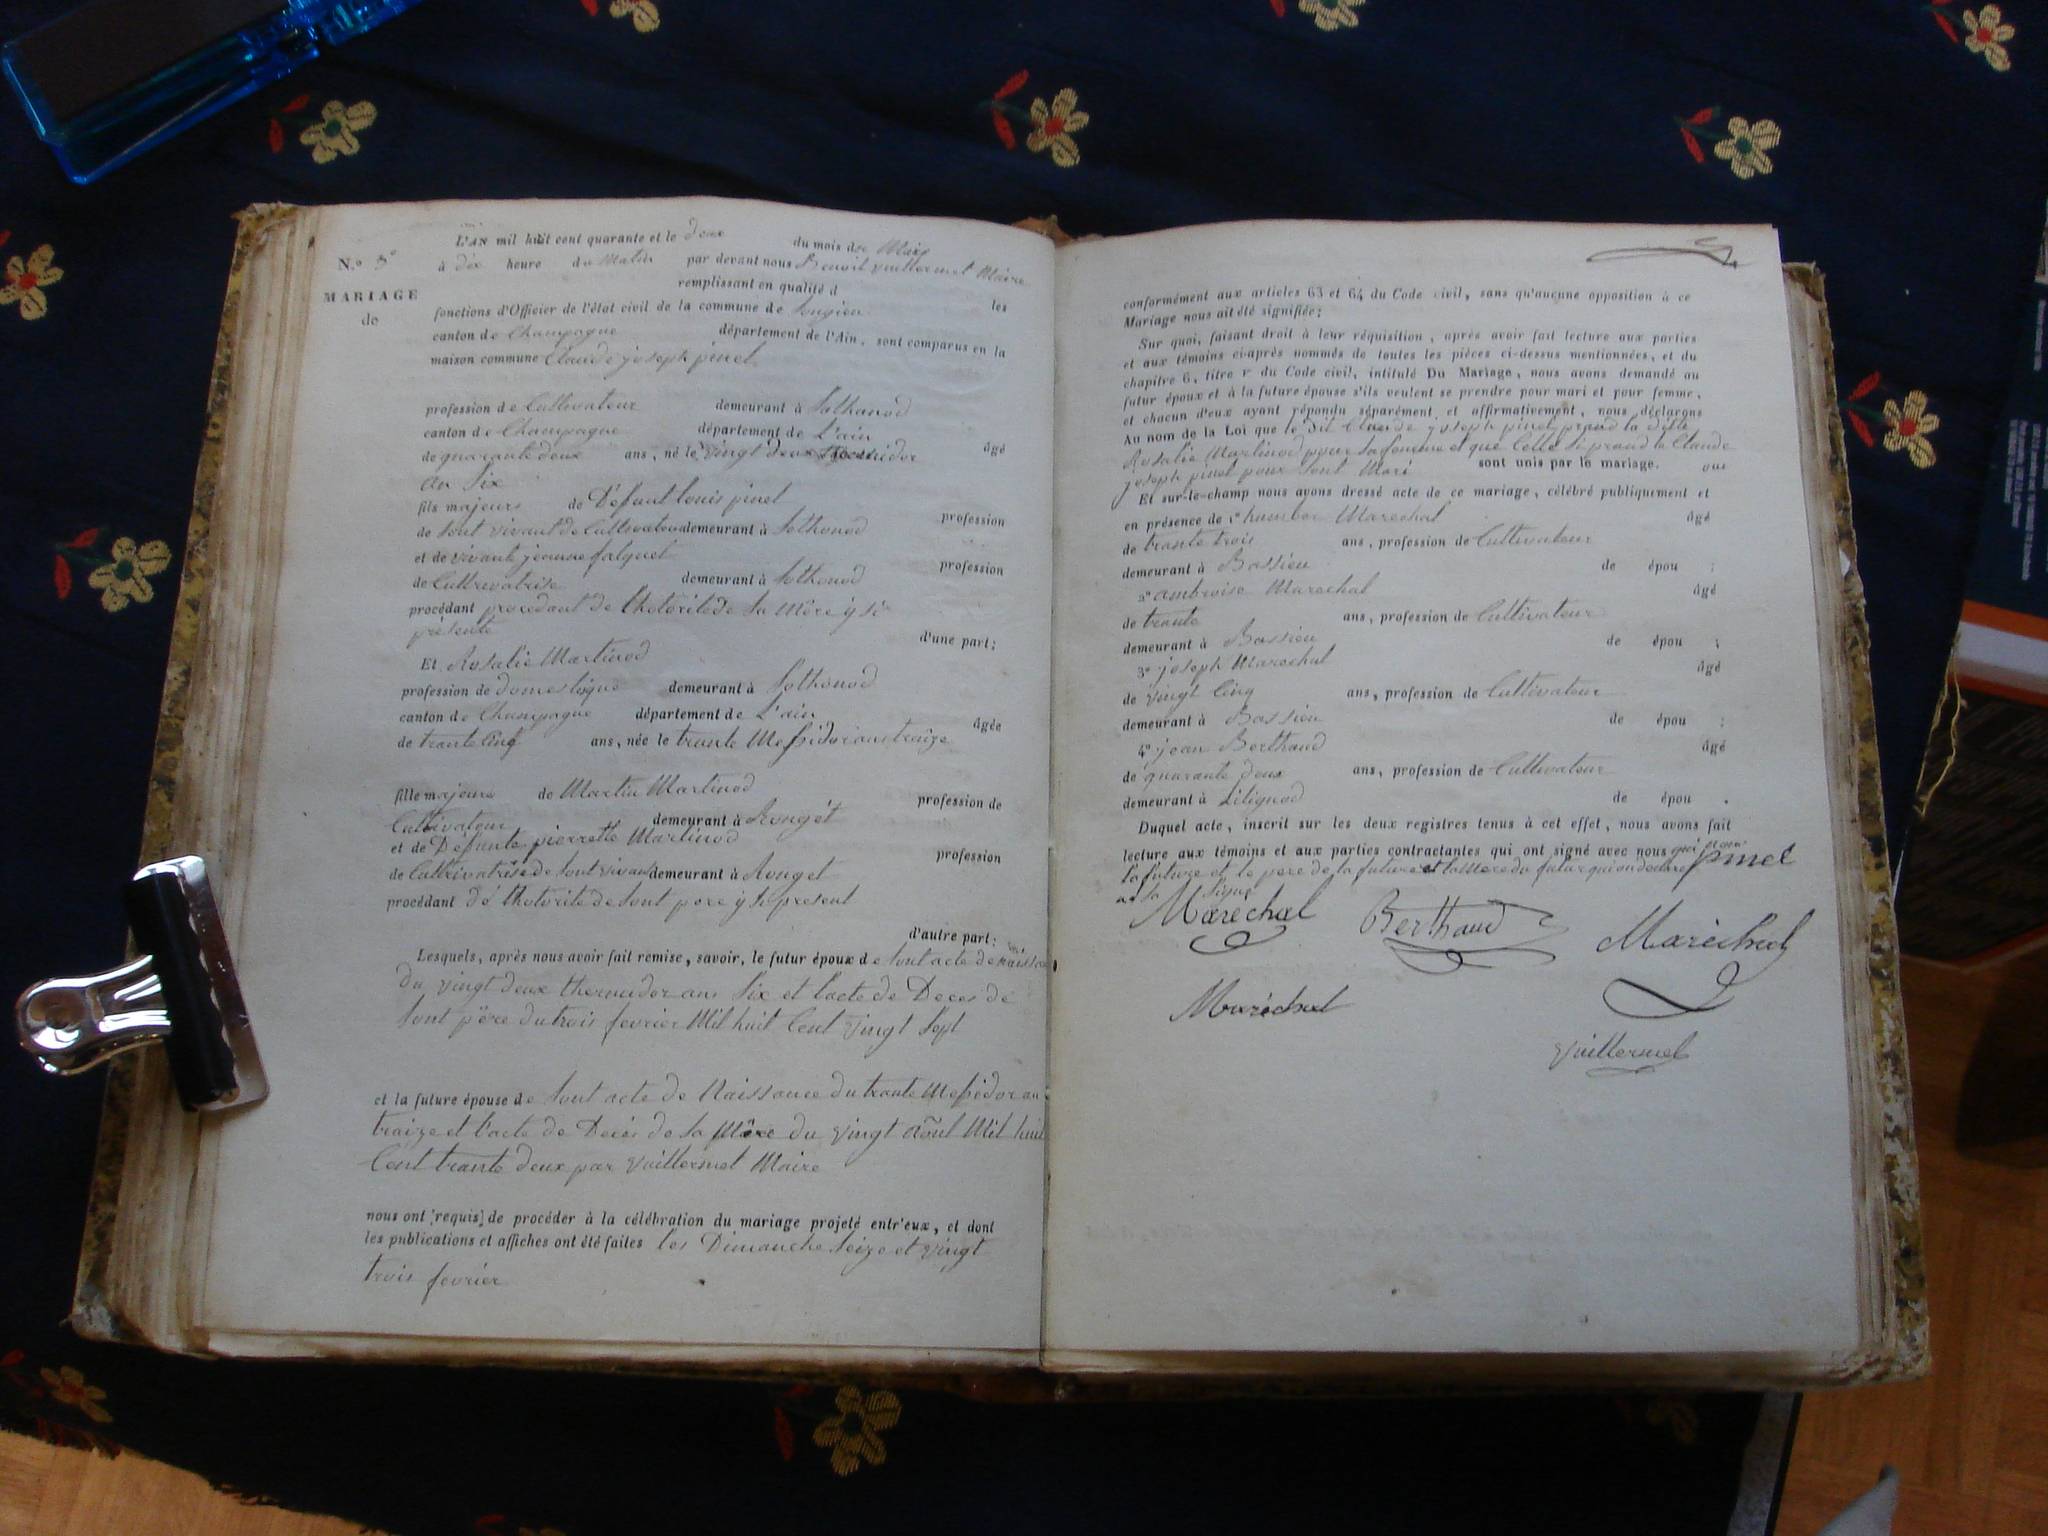 L'AN mil huit cent quarante et le deux du mois de Mars
N.° 3°
à dix heure du Matin par devant nous Benoit Vuillermet Maire
MARIAGE
de
remplissant en qualité d les
fonctions d'Officier de l'état civil de la commune de Songieu
canton de Champagne département de l'Ain, sont comparus en la
maison commune Claude joseph pinel
profession de Cultivateur demeurant à Sothonod
canton de Champagne département de L'ain
de quarante deux ans, né le vingt deux thermidor âgé
an Six
fils majeur de Défunt Louis pinel
de Sont vivant de Cultivateur demeurant à Sothonod profession
et de vivante jeanne falquet
de Cultivatrise demeurant à Sothonod profession
procédant procedant de l'hotorité de Sa Mère y Si
présente d'une part;
Et Rosalie Martinod
profession de domestique demeurant à Sothonod
canton de Champagne département de L'ain
de trante cinq ans, née le trante Messidor ans traize âgée
fille majeure de Martin Martinod
Cultivateur demeurant à Rongét profession de
et de Défunte pierrette Martinod
de Cultivatrise de Sont vivant demeurant à Ronget profession
procédant dé l'hotorité de Sont pere y Si présent
d'autre part;
Lesquels, après nous avoir fait remise, savoir, le futur époux de Sont acte de naissance
du vingt deux thermidor ans Six et l'acte de Deces de
Sont père du trois fevrier Mil huit Cent vingt Sept
et la future épouse de Sont acte de Naissance du trante Messidor an
traize et l'acte de Decés de Sa Mère du vingt août Mil huit
Cent trante deux par Vuillermet Maire
nous ont requis de procéder à la célébration du mariage projeté entr'eux, et dont
les publications et affiches ont été faites les Dimanche Seize et vingt
trois fevrier
conformément aux articles 63 et 64 du Code civil, sans qu'aucune opposition à ce
Mariage nous ait été signifiée;
Sur quoi, faisant droit à leur réquisition, après avoir fait lecture aux parties
et aux témoins ci-après nommés de toutes les pièces ci-dessus mentionnées, et du
chapitre 6, titre v du Code civil, intitulé Du Mariage, nous avons demandé au
futur époux et à la future épouse s'ils veulent se prendre pour mari et pour femme,
et chacun d'eux ayant répondu séparément et affirmativement, nous déclarons
Au nom de la Loi que le dit Claude joseph pinel prand la ditte
Rosalie Martinod pour Sa femme et que Celle Si prand le Claude
joseph pinel pour Sont Mari sont unis par le mariage.
Et sur-le-champ nous avons dressé acte de ce mariage, célébré publiquement et
en présence de 1° humber Marechal âgé
de trante trois ans, profession de Cultivateur
demeurant à Bassieu de épou ;
2° ambroise Marechal âgé
de trante ans, profession de Cultivateur
demeurant à Bassieu de épou ;
3° joseph Marechal âgé
de vingt Cinq ans, profession de Cultivateur
demeurant à Bassieu de épou ;
4° jean Berthaud âgé
de quarante deux ans, profession de Cultivateur
demeurant à Lilignod de épou .
Duquel acte, inscrit sur les deux registres tenus à cet effet, nous avons fait
lecture aux témoins et aux parties contractantes qui ont signé avec nous pinel
la future et le pere de la future et la Mere du futur qui on declare
Signé
Maréchal Berthaud Maréchal
Maréchal
Vuillermet